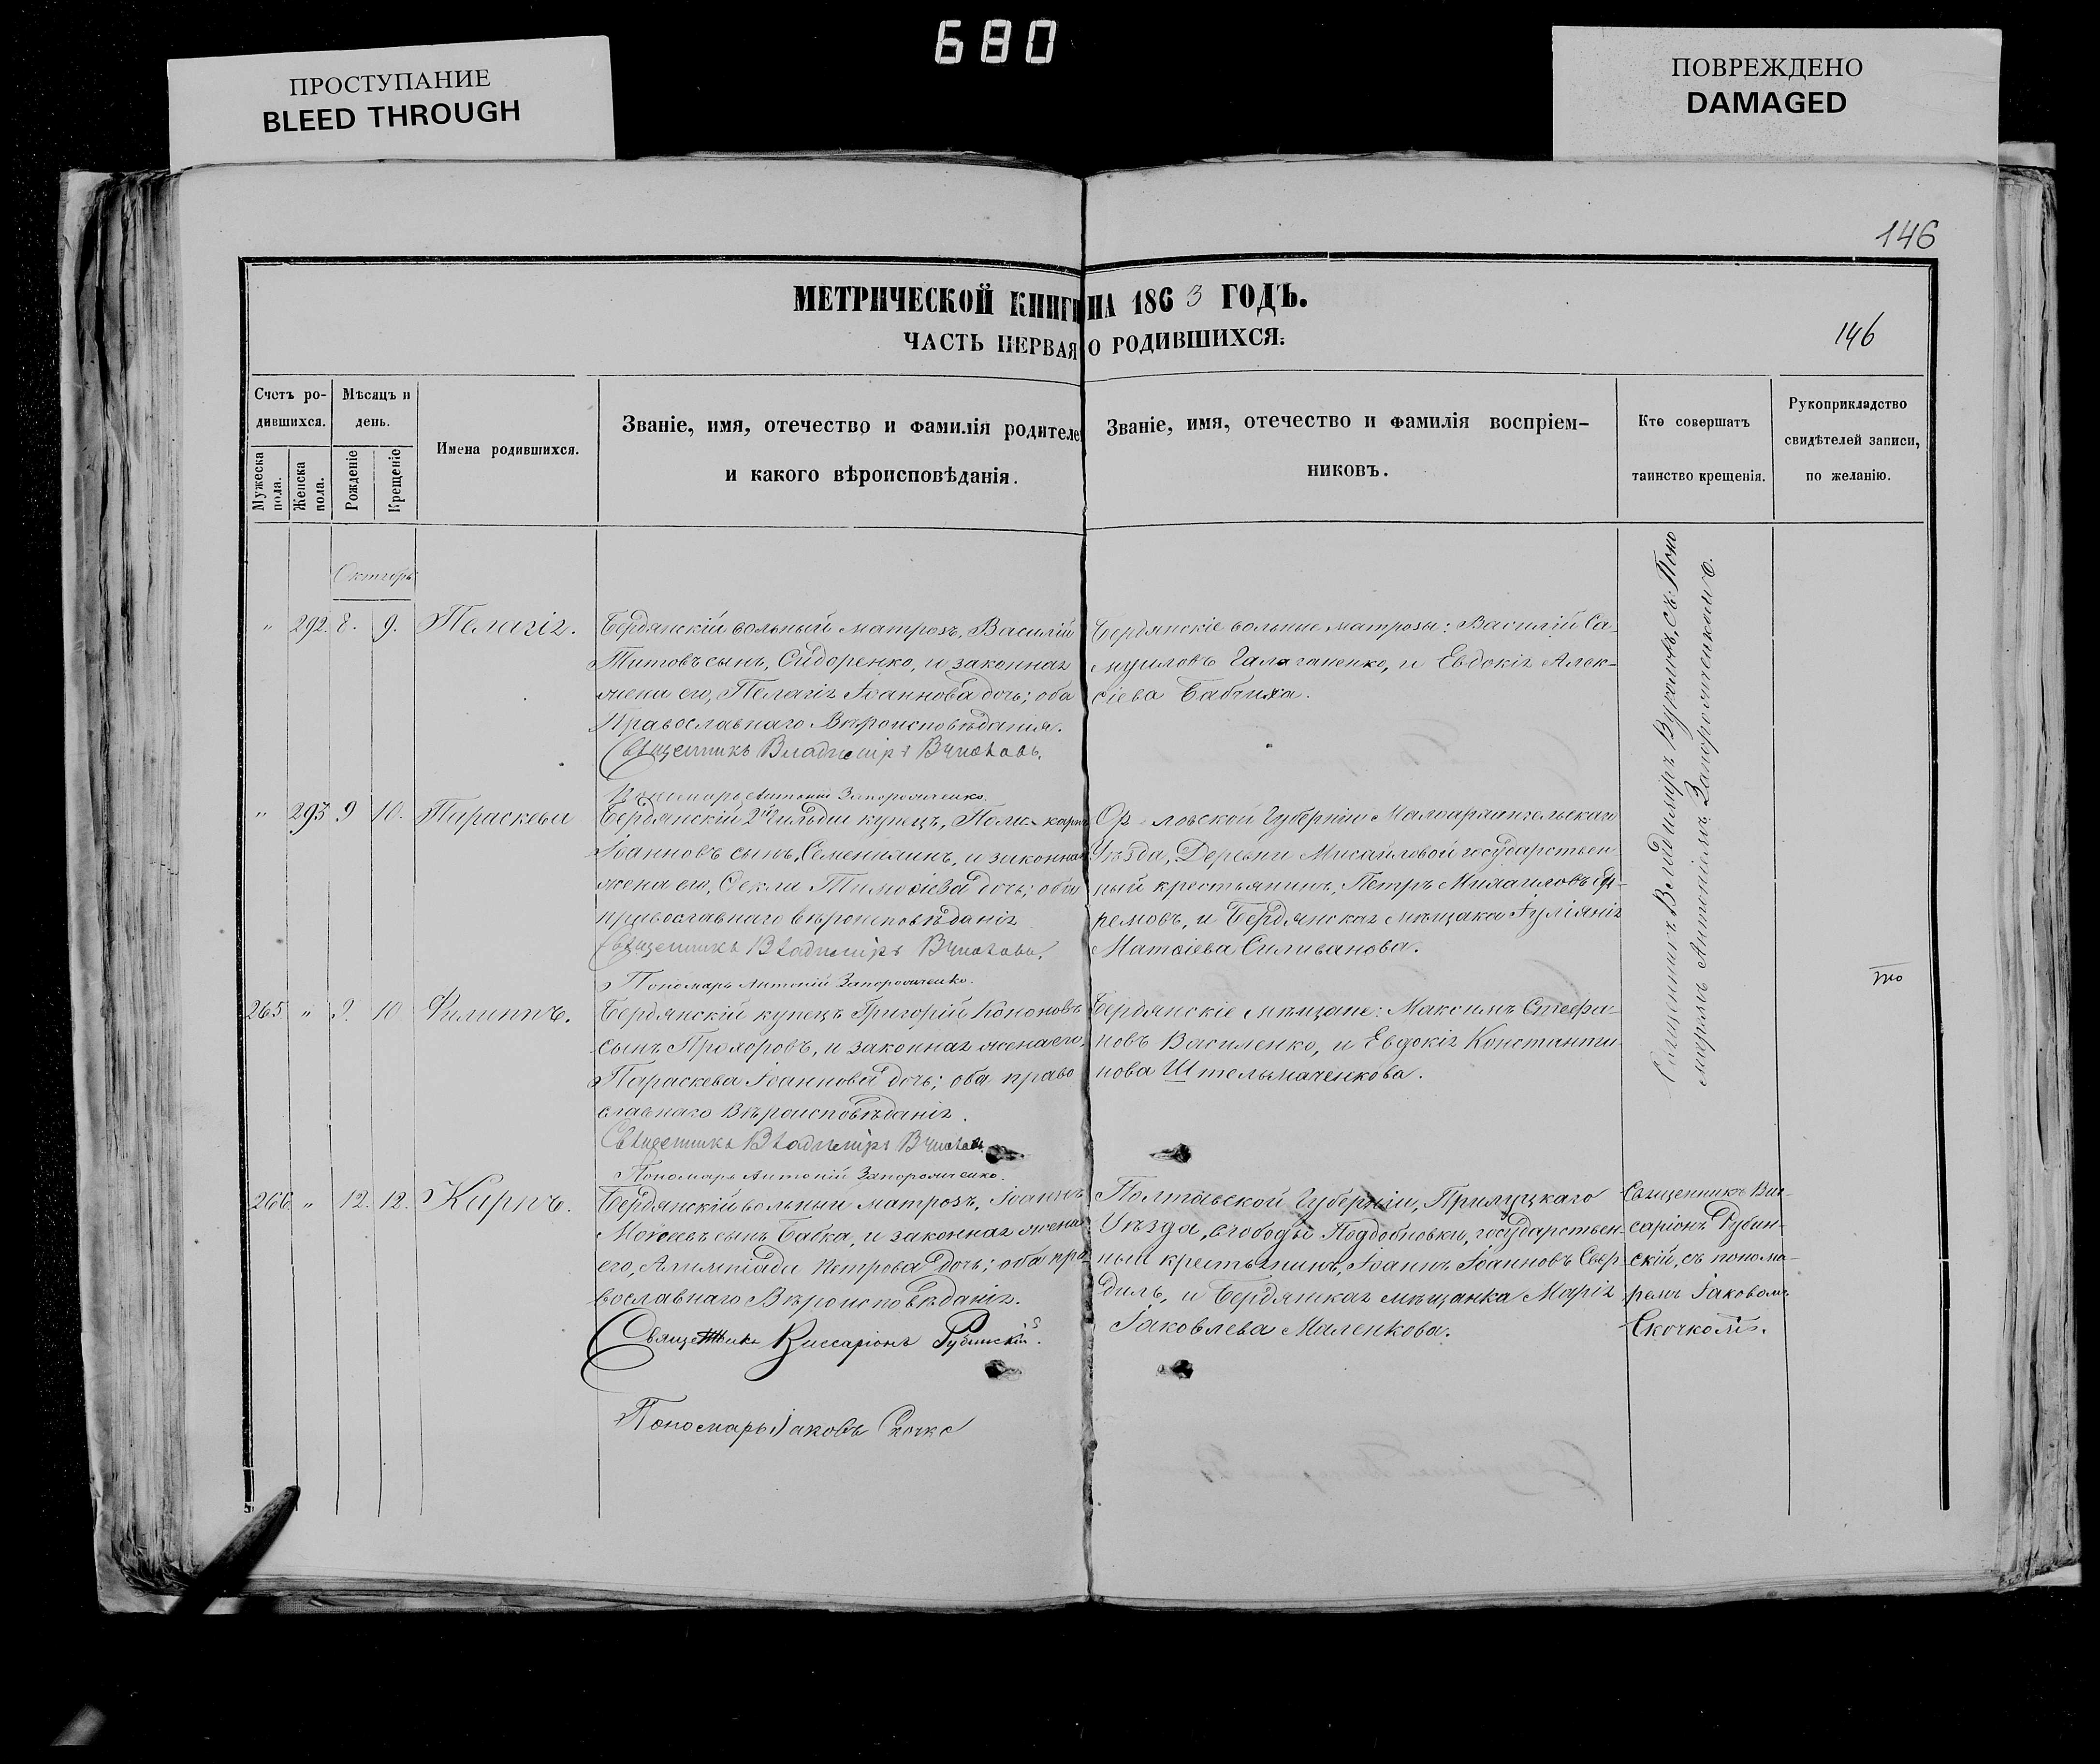 680
ПРОСТУПАНИЕ
BLEED THROUGH
ПОВРЕЖДЕНО
DAMAGED
146
МЕТРИЧЕСКОЙ КНИГИ НА 1863 ГОДЪ.
ЧАСТЬ ПЕРВАЯ О РОДИВШИХСЯ.
146
Счетъ ро-
дившихся.
Мужеска пола.
Женска пола.
Мѣсяцъ и
день.
Рожденіе
Крещеніе
Имена родившихся.
Званіе, имя, отечество и фамилія родителе
и какого вѣроисповѣданія.
Званіе, имя, отечество и фамилія воспріем-
никовъ.
Кто совершатъ
таинство крещенія.
Рукоприкладство
свидѣтелей записи,
по желанію.
" 292. 8. 9. Пелагія.
Бердянскій вольный матрозъ, Василій
Титовъ сынъ, Сидоренко, и законная
жена его, Пелагія Іоаннова дочь; оба
Православнаго Вѣроисповѣданія.
Священникъ Владиміръ
Пономарь Антоній Запорожченко.
Бердянскіе вольные матрозы: Василій Са-
муиловъ Галаганенко, и Евдокія Алек-
сіева Бабчиха.
Священникъ Владиміръ съ Поно
маремъ Антоніемъ Запорожченкомъ.
" 293 9 10. Параскева
Бердянскій 2й гильдіи купецъ, Поли-карпъ
Іоанновъ сынъ, и законная
жена его, Ѳекла Тимоѳіева дочь; оба
православнаго вѣроисповѣданія
Священникъ Владиміръ
Пономарь Антоній Запорожченко.
Ор-ловской Губерніи Малоархангельскаго
Уѣзда, Деревни Мисайловой государствен-
ный крестьянинъ, Петръ
и Бердянская мѣщанка Іуліанія
Матѳіева Силиванова.
265 " 9. 10 Филиппъ.
Бердянскій купецъ Григорій Кононовъ
сынъ Прохоровъ, и законная жена его,
Параскева Іоаннова дочь; оба право
славнаго Вѣроисповѣданія.
Священникъ Владиміръ
Пономарь Антоній Запорожченко.
Бердянскіе мѣщане: Максимъ Стефа-
новъ Василенко, и Евдокія Константи-
нова Штельмаченкова.
266 " 12. 12. Карпъ.
Бердянскій вольный матрозъ, Іоаннъ
сынъ Бабка, и законная жена
его, Петрова дочь; оба пра-
вославнаго Вѣроисповѣданія.
Священникъ Виссаріонъ
Пономарь Іаковъ Скочко
Полтавской Губерніи, Прилуцкаго
Уѣзда, слободы государствен-
ный крестьянинъ, Іоаннъ Іоанновъ Свер-
дилъ, и Бердянская мѣщанка Марія
Іаковлева Маленкова.
Священникъ Вис-
саріонъ
скій, съ понома-
ремъ Іаковомъ
Скочкомъ.